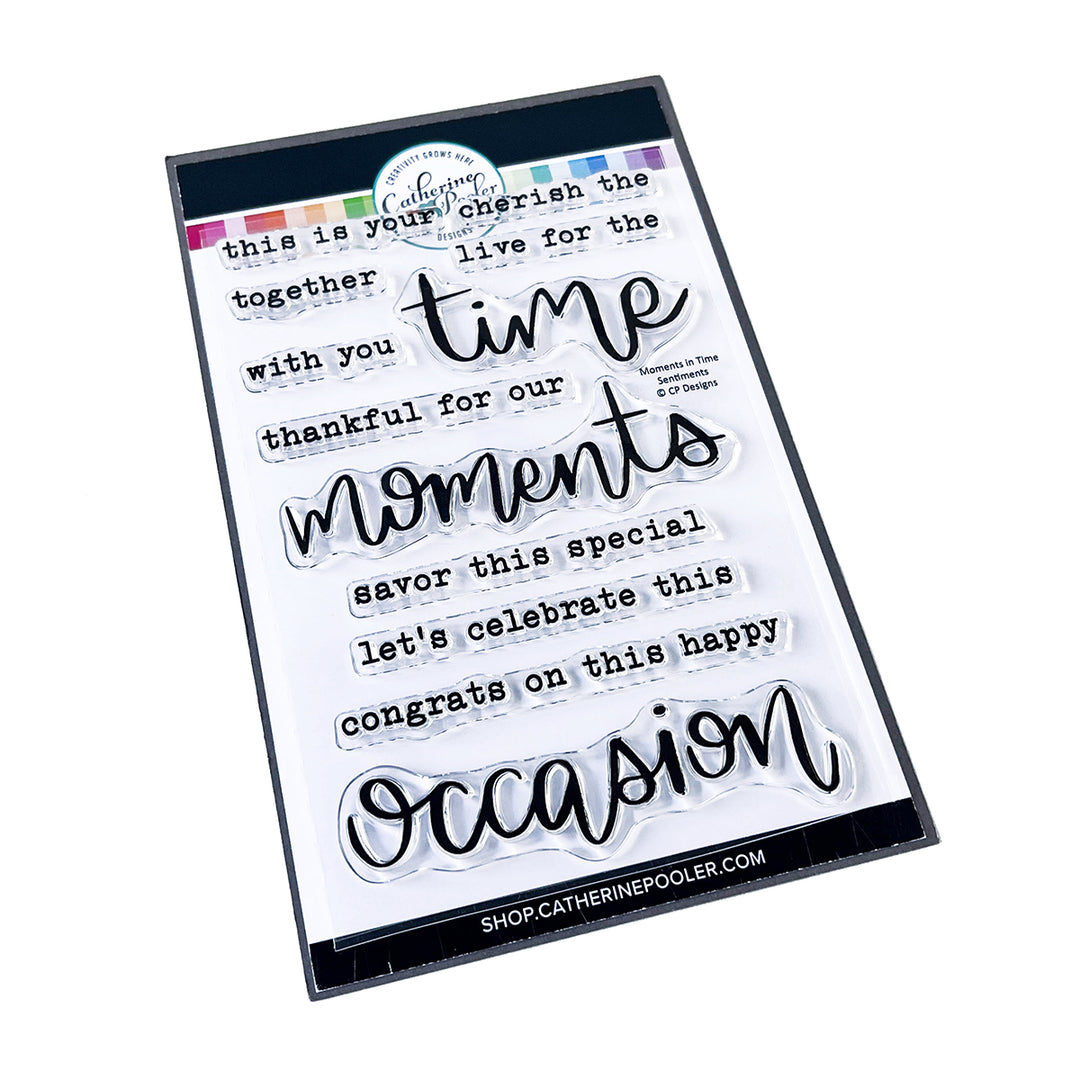 CREATIVITY GROWS HERE
Catherine
Pooler
DESIGNS
this is your
cherish the
live for the
together
time
with you
Moments in Time
Sentiments
© CP Designs
thankful for our
moments
savor this special
let's celebrate this
congrats on this happy
occasion
SHOP.CATHERINEPOOLER.COM